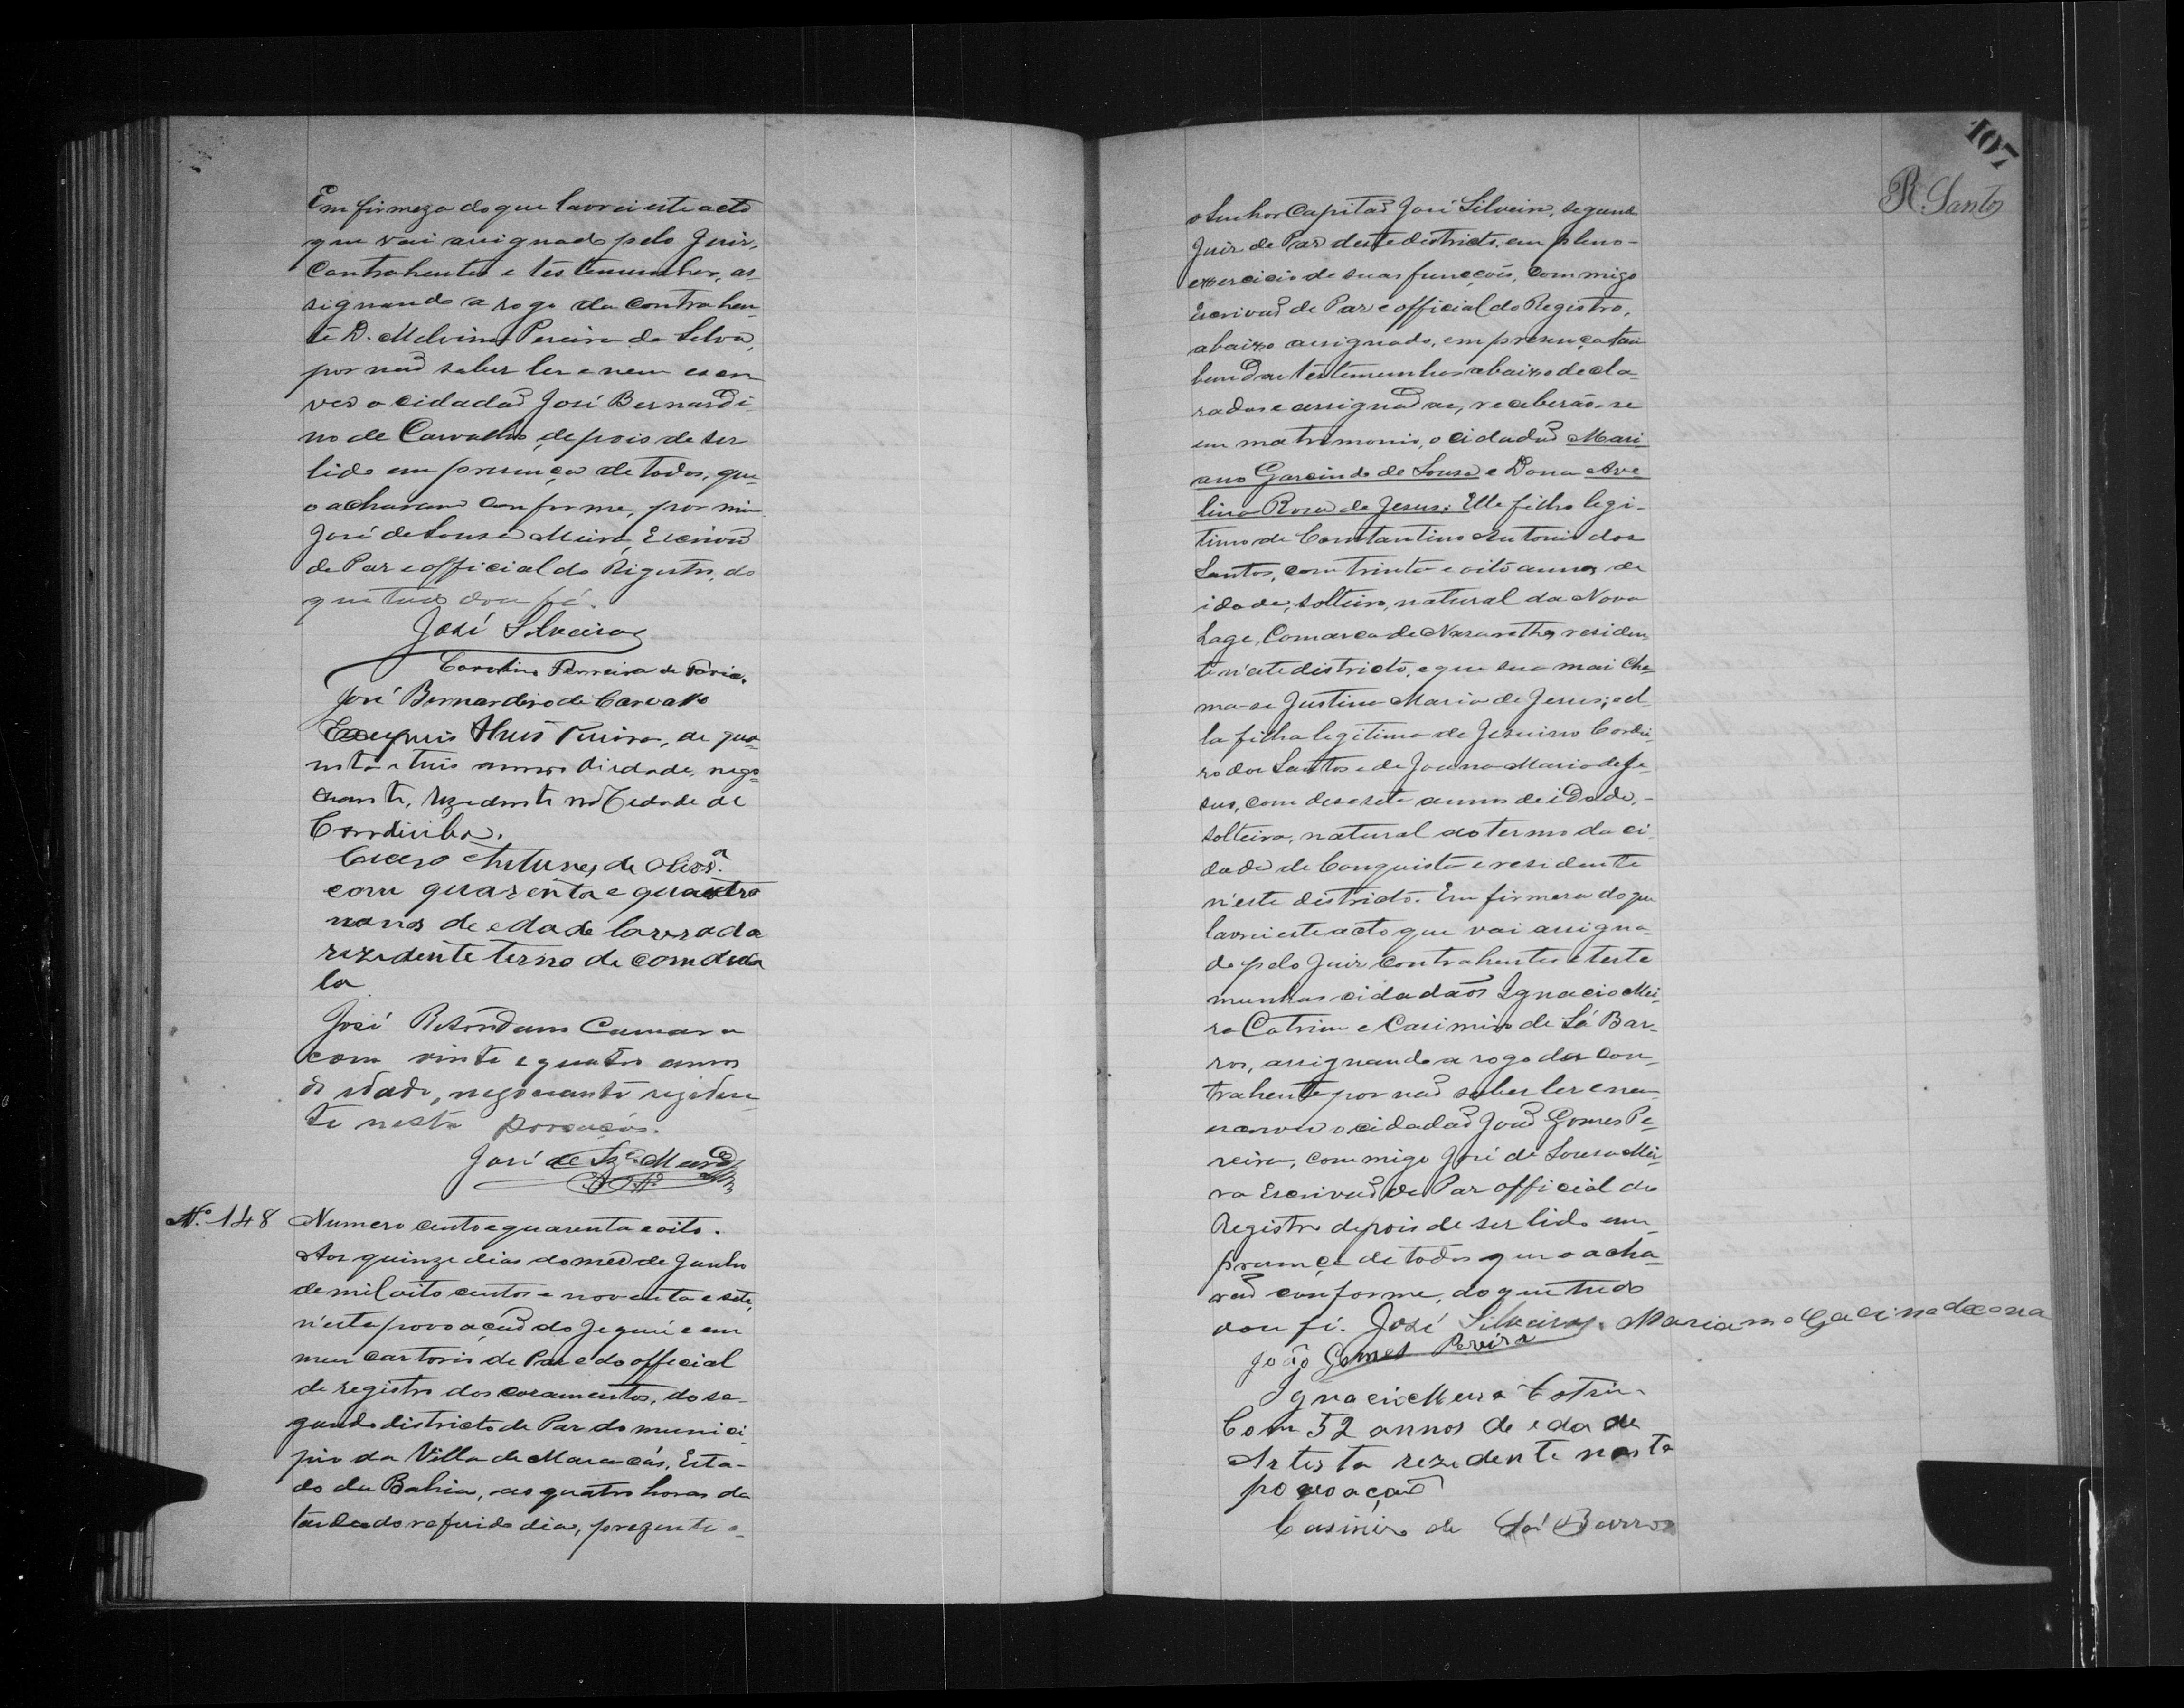 Em firmeza do que lavrei este acto
que vai assignado pelo Juiz,
Contrahentes e testemunhas, as
signando a rogo da contrahen
te D. Melvina Pereira da Silva,
por naõ saber ler e nem escre
ver o cidadaõ José Bernardi
no de Carvalho, depois de ser
lido em presença de todos, que
o acharam conforme, por mim
José de Sousa Meira, Escrivaõ
de Paz e official do Registro, do
que tudo dou fé.
José Silveira
Ferreira de Faria.
José Bernardino de Carvalho
de qua
renta e tres annos di edade, nego
ciante, rezedente na Cidade de
Cicero Antunes de Olivrª
com quarenta e quatro
nanos de edade lavrada
rezedente termo de
la
José Camara
com vinte e quatro annos
de idade, negociante rezeden
te nesta povoação.
José de Szª Meira
Nº 148 Numero cento e quarenta e oito.
Aos quinze dias do mez de Junho
de mil oito centos e noventa e sete,
n'esta povoaçaõ do Jequié e em
meu cartorio de Paz e do official
de registro dos casamentos, do se-
gundo districto de Paz do munici
pio da Villa de Maracás, Esta-
do da Bahia, as quatro horas da
tarde do referido dia, prezente o-
107
R. Santos
o Senhor Capitaõ José Silveira, segundo
Juiz de Paz deste districto, em pleno-
exercicio de suas funcções, com migo
Escrivaõ de Paz e official do Registro,
abaixo assignado, em presença tam
bem das testemunhas abaixo decla-
radas e assignadas, receberão-se
em matrimonio, o cidadaõ Mari
ano Garcindo de Sousa e Dona Ave-
lina Rosa de Jesus: Elle filho legi-
timo de Constantino Antonio dos
Santos, com trinta e oito annos de
idade, solteiro, natural da Nova
Lage, Comarca de Nazareth, residen
te n'este districto, e que sua mai cha
ma-se Justina Maria de Jesus; el
la filha legitima de Jesuino Cordei
ro dos Santos e de Joanna Maria de Je-
sus, com desesete annos de idade,-
solteira, natural do termo da ci
dade de Conquista e residente
n'este districto. Em firmeza do que
lavrei este acto que vai assigna-
do pelo Juiz contrahentes e teste
munhas cidadãos Ignacio Mei
ra Cotrim e Casimiro de Sá Bar-
ros, assignando a rogo da con-
trahente por naõ saber ler e nem
escrever o cidadaõ Joaõ Gomes Pe-
reira, com migo José de Sousa Mei-
ra Escrivaõ de Paz official do
Registro depois de ser lido em
presença de todos que o acha-
raõ conforme, do que tudo
dou fé. José Silveira. Mariano
João Gomes Pereira
Ignacio Meira Cotrim
Com 52 annos de edade
Artista rezedente nesta
povoaçaõ
Casimiro de Sá Barros